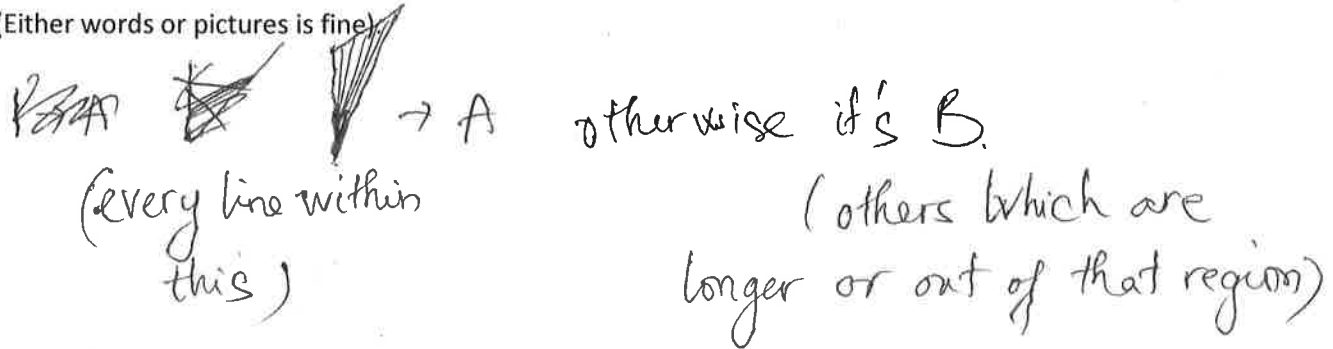 (Either words or pictures is fine).
→ A otherwise it's B.
(every line within
this)
(others which are
longer or out of that region)